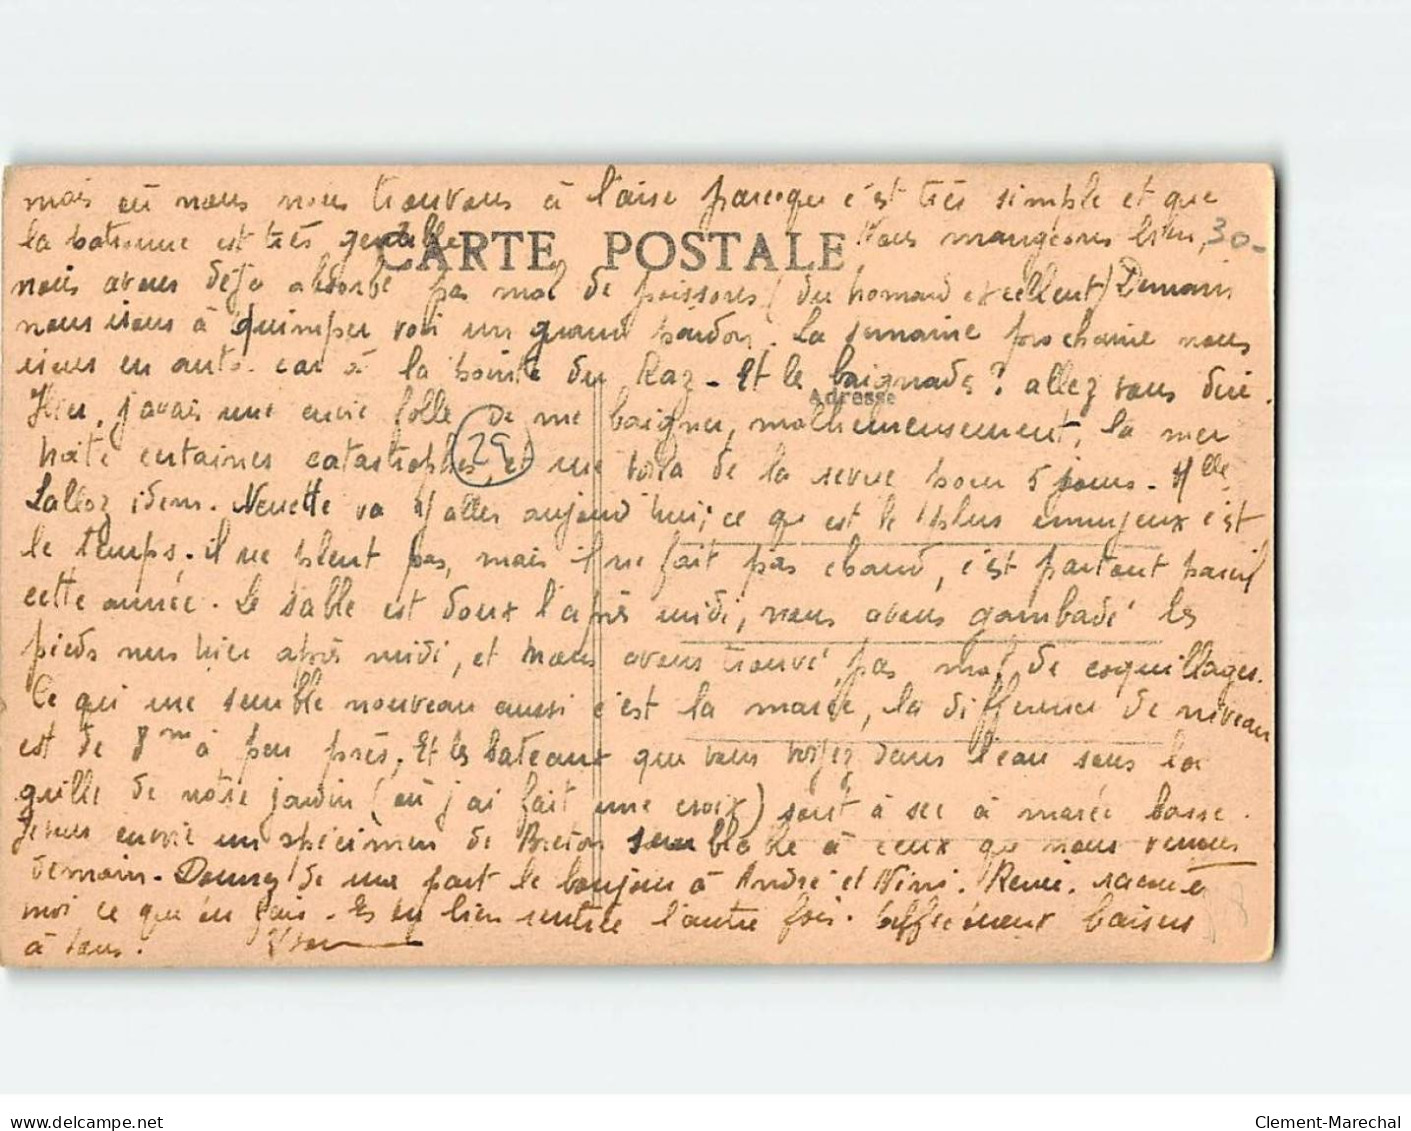 mais où nous nous trouvons à l'aise parceque c'est très simple et que
la patronne est très gentille Nous mangeons bien, 30-
CARTE POSTALE
nous avons déjà absorbé pas mal de poissons (du homard excellent) Demain
nous irons à Quimper voir un grand pardon. La semaine prochaine nous
irons en auto-car à la pointe du Raz - Et la baignade? allez vous dire.
Adresse
Hier, j'avais une envie folle de me baigner, malheureusement, la mer
hâte certaines catastrophes, et me voilà de la revue pour 5 jours - Mlle
29
Lalloz idem. Nenette va y aller aujourd'hui; ce qui est le plus ennuyeux c'est
le temps. il ne pleut pas, mais il ne fait pas chaud, c'est partout pareil
cette année. Le sable est doux l'après midi, nous avons gambadé les
pieds nus hier après midi, et nous avons trouvé pas mal de coquillages.
Ce qui me semble nouveau aussi c'est la marée, la différence de niveau
est de 8m à peu près. Et les bateaux que vous voyez dans l'eau sous la
grille de notre jardin (où j'ai fait une croix) sont à sec à marée basse.
Je vous envoie un spécimen de Breton semblable à ceux que nous verrons
demain - Donnez de ma part le bonjour à André et Nini. Renée. raconte
moi ce que tu fais. Es tu bien rentrée l'autre fois. Affectueux baisers
à tous.